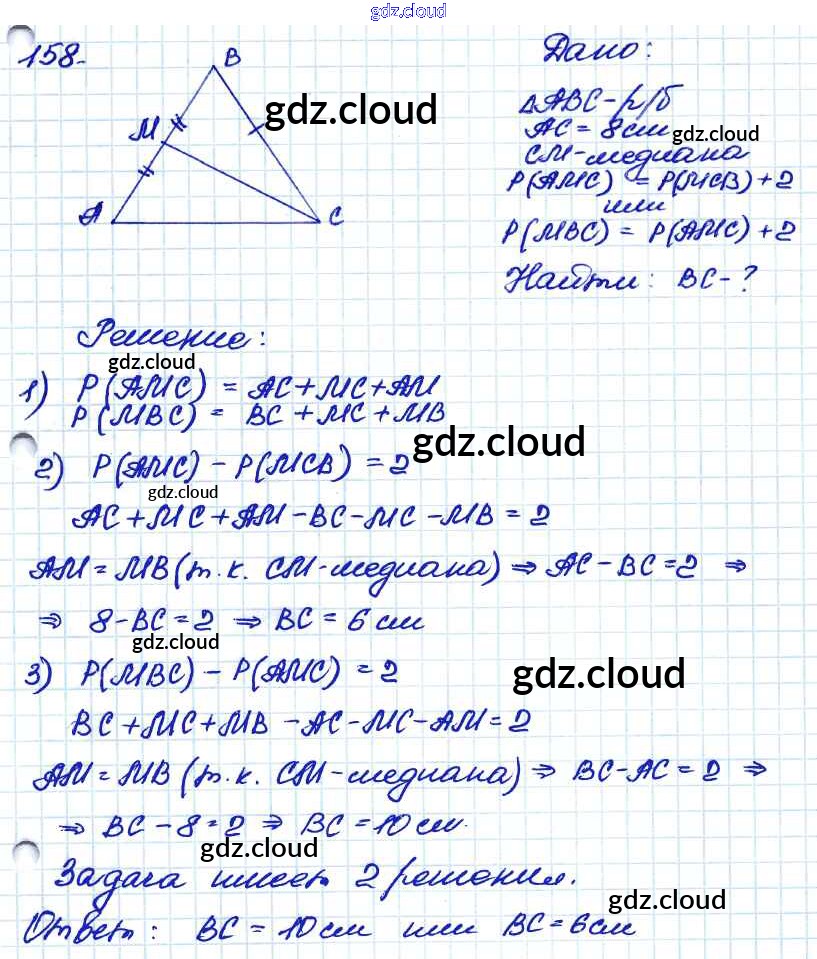 gdz.cloud
158.
B
M
A
C
gdz.cloud
Дано:
△ABC - р/б
AC = 8см
gdz.cloud
CM - медиана
P(AMC) = P(MCB) + 2
или
P(MBC) = P(AMC) + 2
Найти: BC - ?
Решение:
gdz.cloud
1) P(AMC) = AC + MC + AM
P(MBC) = BC + MC + MB
gdz.cloud
2) P(AMC) - P(MCB) = 2
gdz.cloud
AC + MC + AM - BC - MC - MB = 2
AM = MB (т.к. CM - медиана) ⇒ AC - BC = 2 ⇒
⇒ 8 - BC = 2 ⇒ BC = 6 см
gdz.cloud
3) P(MBC) - P(AMC) = 2
gdz.cloud
BC + MC + MB - AC - MC - AM = 2
AM = MB (т.к. CM - медиана) ⇒ BC - AC = 2 ⇒
⇒ BC - 8 = 2 ⇒ BC = 10 см.
gdz.cloud
Задача имеет 2 решения.
gdz.cloud
Ответ: BC = 10 см или BC = 6 см